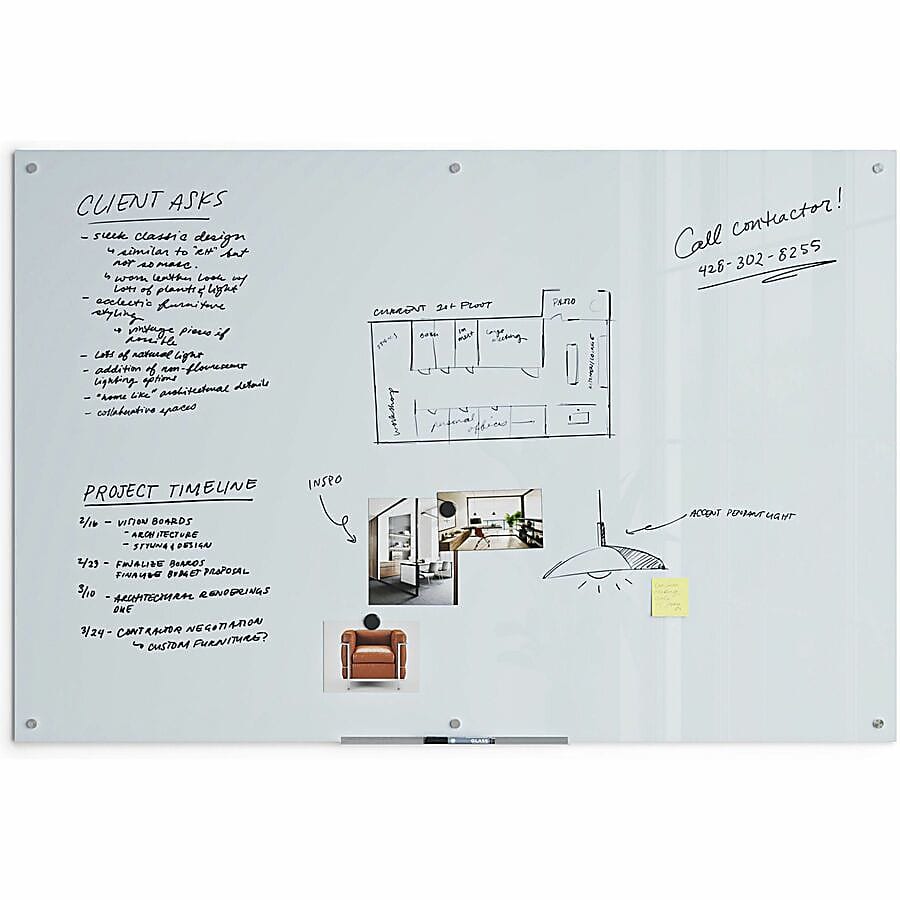 CLIENT ASKS
- sleek classic design
↳ similar to "RH" but
not so masc.
↳ worn leather look w/
lots of plants & light
- ecclectic furniture
styling
↳ vintage pieces if
possible
- Lots of natural light
- addition of non-flourescent
lighting options
- "home like" architectural details
- collaborative spaces
Call contractor!
428-302-8255
CURRENT 2nd FLOOR
PATIO
large
meeting
workshop
personal offices
PROJECT TIMELINE
2/16 - VISION BOARDS
- ARCHITECTURE
- STYLING & DESIGN
2/23 - FINALIZE BOARDS
FINALIZE BUDGET PROPOSAL
3/10 - ARCHITECTURAL RENDERINGS
DUE
3/24 - CONTRACTOR NEGOTIATION
↳ CUSTOM FURNITURE?
INSPO
ACCENT PENDANT LIGHT
GLASS